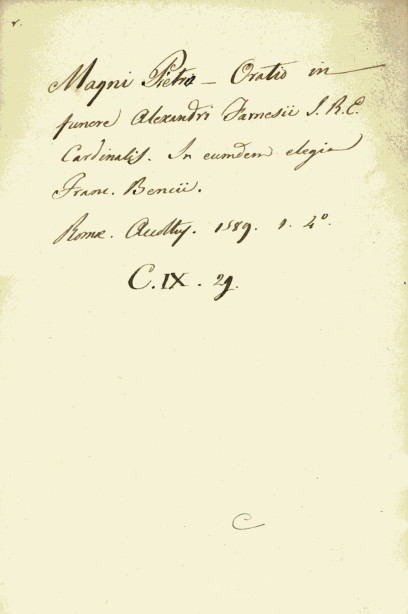 Magni Pietro — Oratio in
funere Alexandri Farnesii S. R. E.
Cardinalis. In eumdem elegia
Franc. Bencii.
Romæ. 1589. 1. 4°.
C. IX. 29.
C